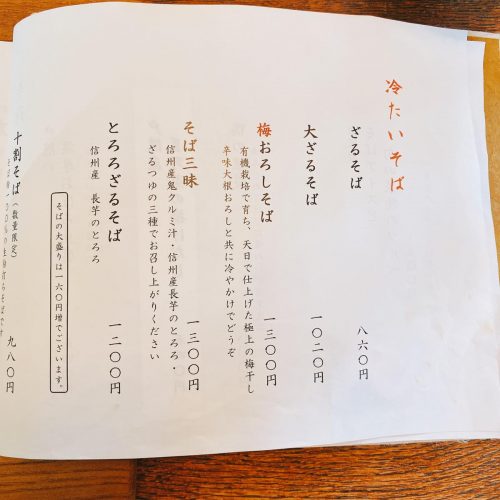 冷たいそば
ざるそば 八六〇円
大ざるそば 一〇二〇円
梅おろしそば 一三〇〇円
有機栽培で育ち、天日で仕上げた極上の梅干し
辛味大根おろしと共に冷やかけでどうぞ
そば三昧 一三〇〇円
信州産鬼クルミ汁・信州産長芋のとろろ・
ざるつゆの三種でお召し上がりください
とろろざるそば 一二〇〇円
信州産 長芋のとろろ
そばの大盛りは一六〇円増でございます。
十割そば(数量限定) 九八〇円